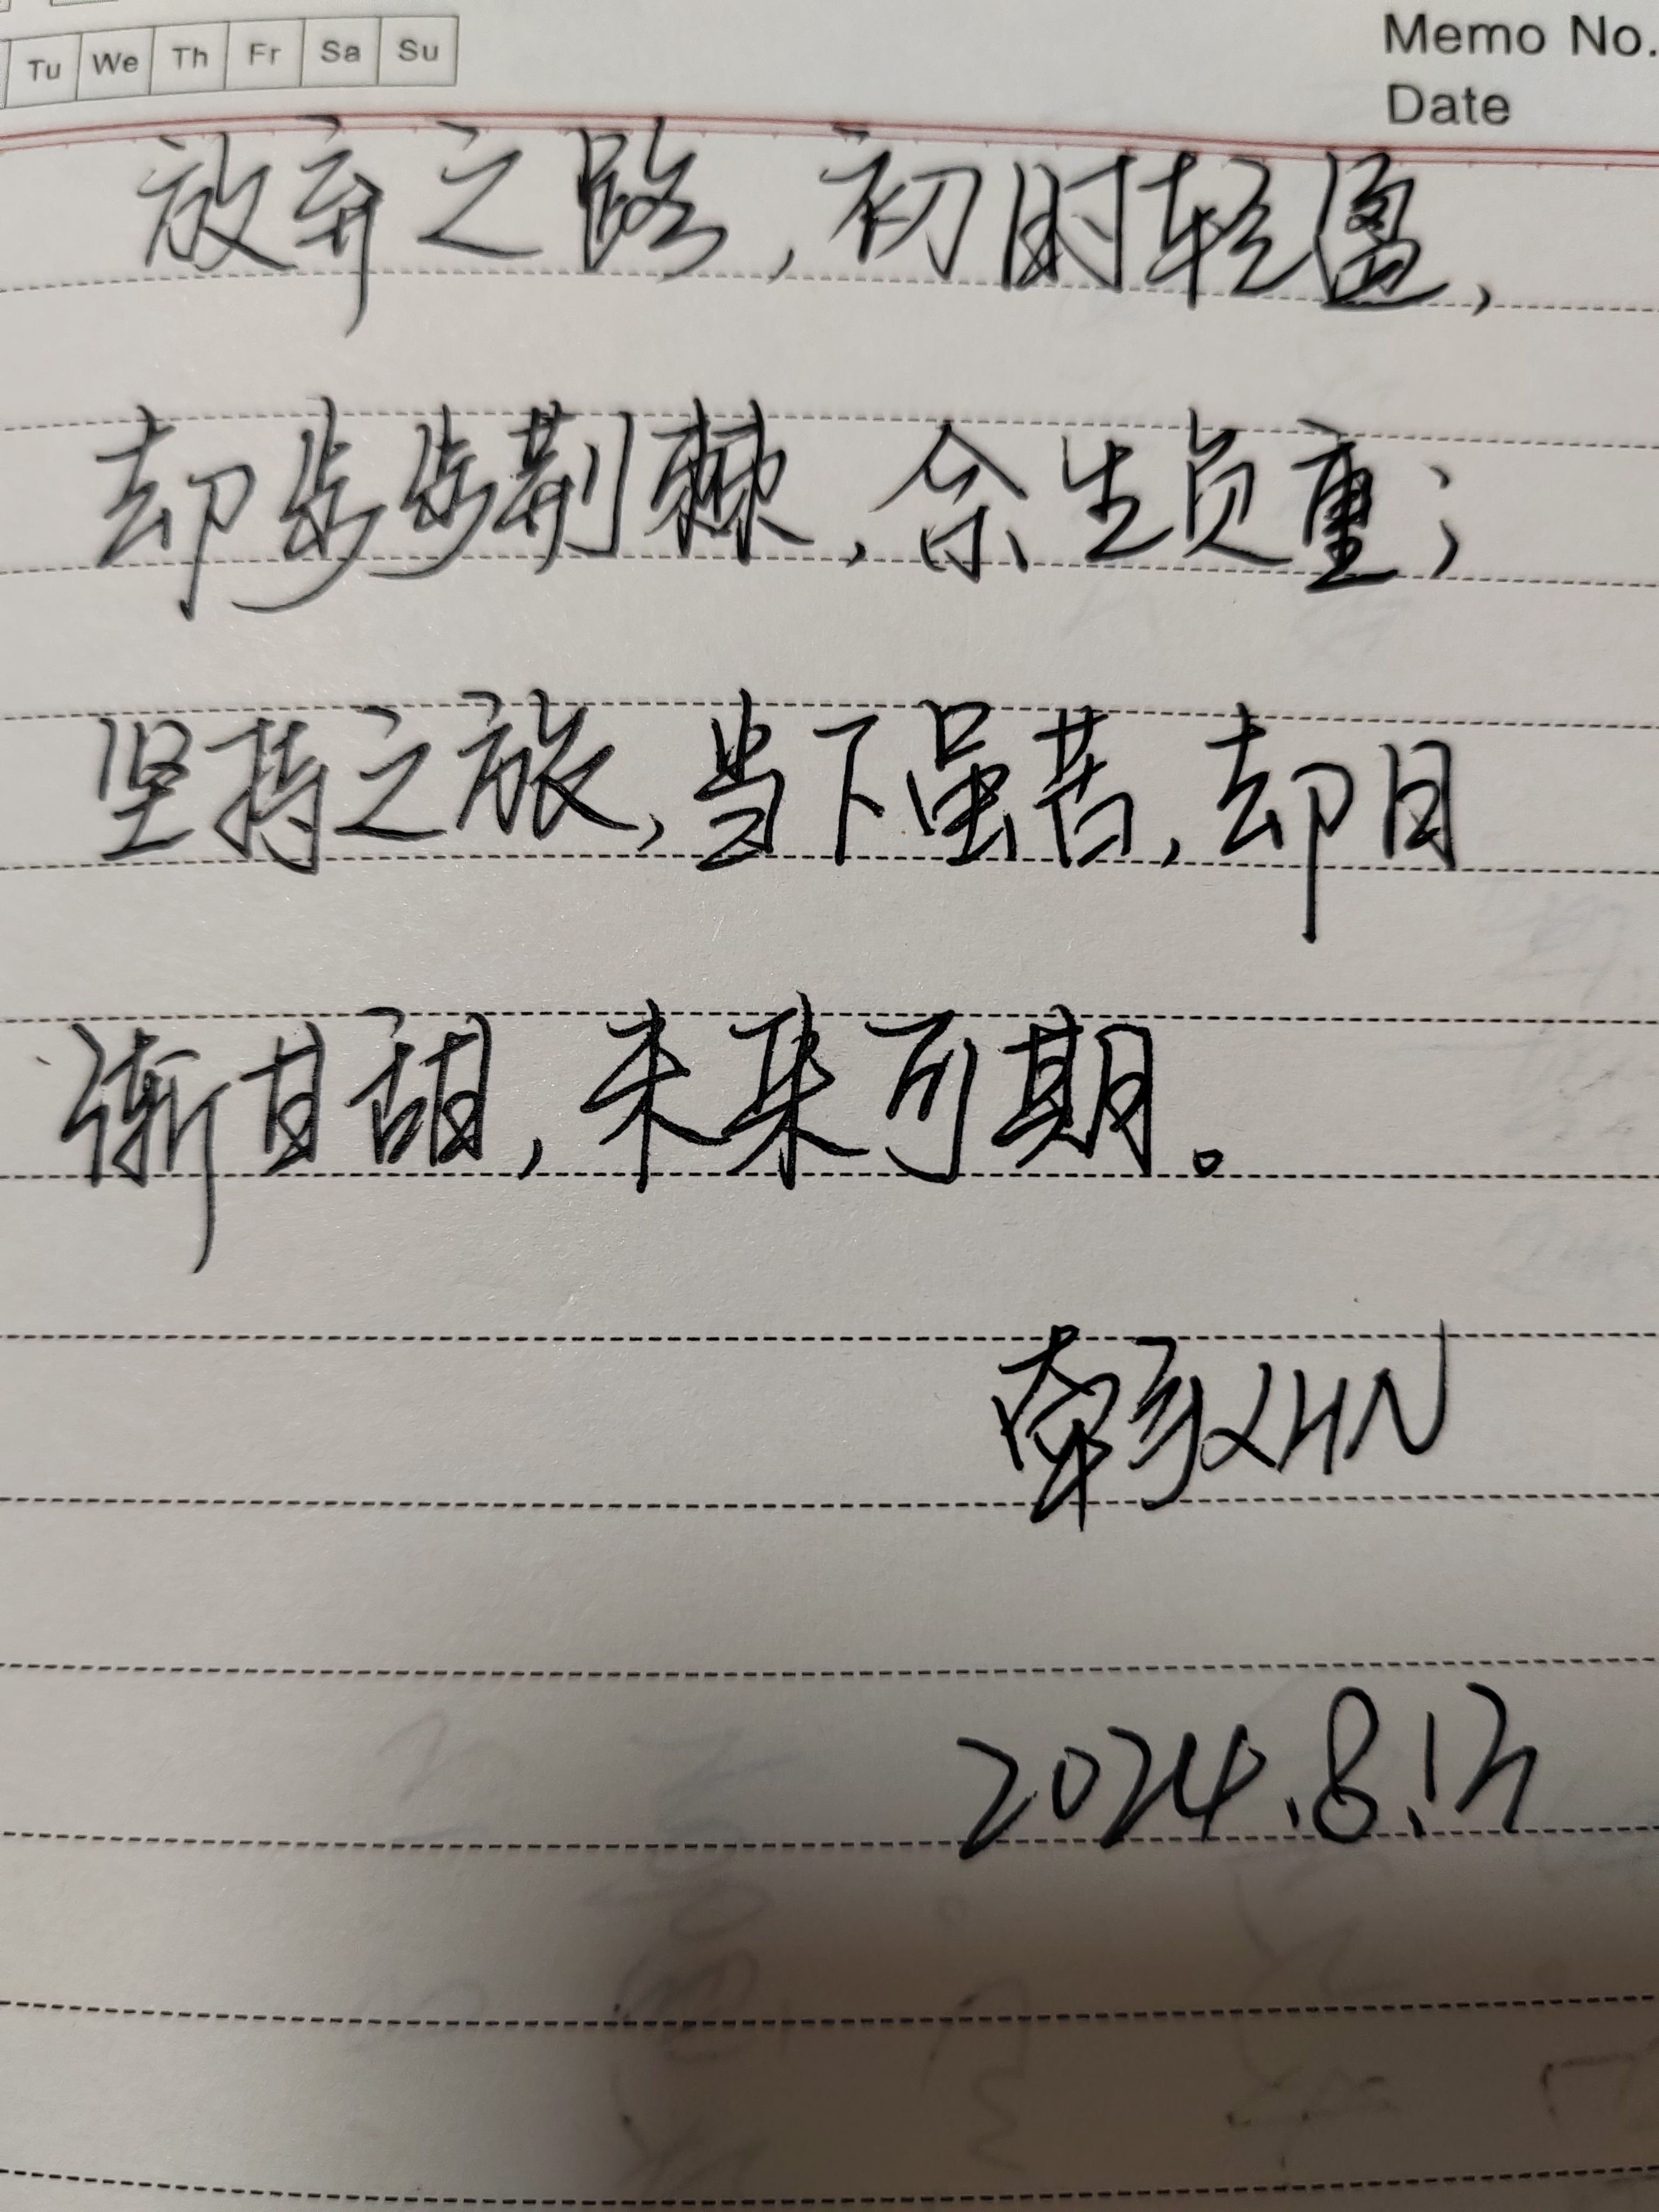 Tu We Th Fr Sa Su
Memo No.
Date
放弃之路，初时轻盈，
却步步荆棘，余生负重；
坚持之旅，当下虽苦，却日
渐甘甜，未来可期。
XHN
2024.8.12